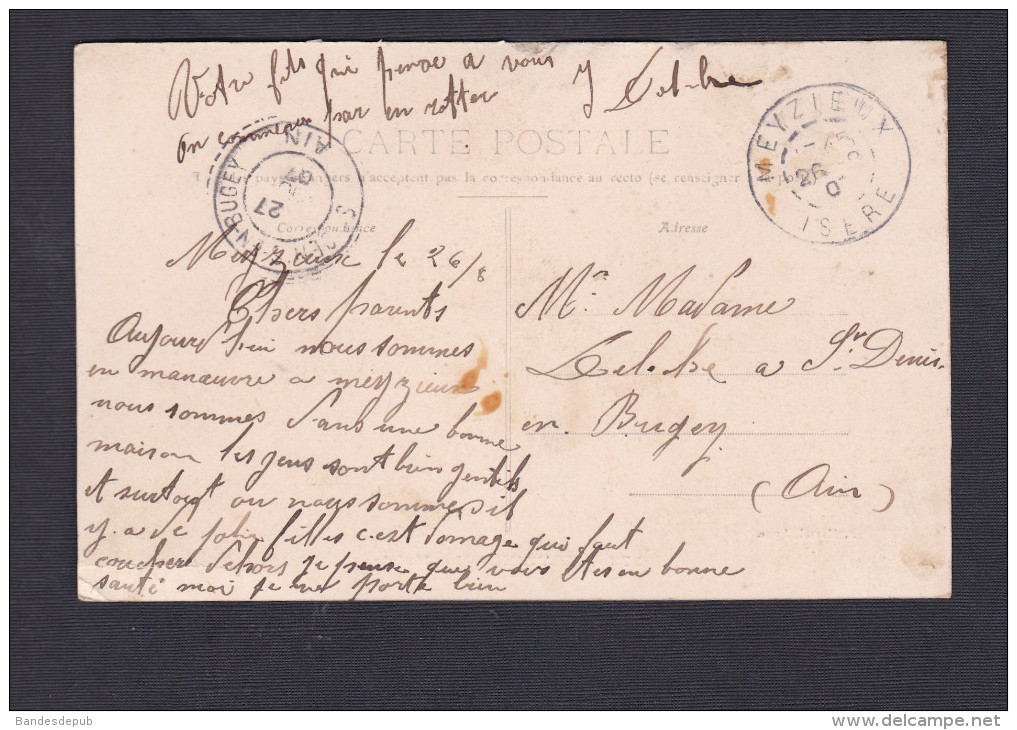 Votre fils qui pense a vous
on commence par en rotter
CARTE POSTALE
pays étrangers n'acceptent pas la correspondance au recto (se renseigner
MEYZIEUX
26
ISERE
BUGEY
AIN
27
Correspondance
Adresse
Meyzieux le 26/8
Chers parents
Aujourd'hui nous sommes
en manœuvre a meyzieux
nous sommes dans une bonne
maison les gens sont bien gentils
et surtout ou nous sommes il
y. a de jolie filles c'est domage qui faut
coucher dehors je pense que vous etes en bonne
santé moi je me porte bien
Mr Madame
a St Denis.
en Bugey
(Ain)
Bandesdepub
www.delcampe.net